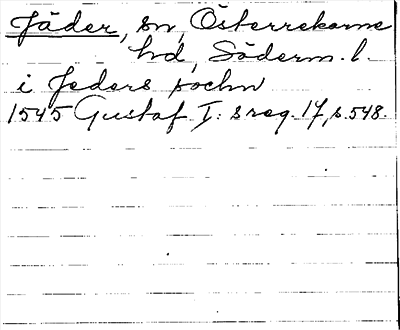 Jäder, sn, Österrekarne
hd, Söderm. l.
i Jeders sochn
1545 Gustaf I:s reg. 17, s. 548.